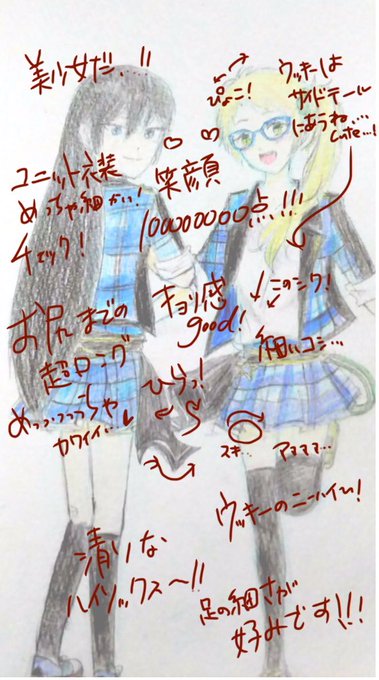 美少女だ…!!
ぴょこ!
ウッキーは
サイドテール
にあうね…
cute…!
ユニット衣装
めっちゃ細かい!
チェック!
笑顔
10000000点!!!
キョリ感
good!
このシワ!
細いコシ…
お尻までの
超ロング
めっっっっちゃ
カワイイ…♥
ひらっ!
スキ…
アアアア…
ウッキーのニーハイ!
清りな
ハイソックス〜!!
足の細さが
好みです!!!